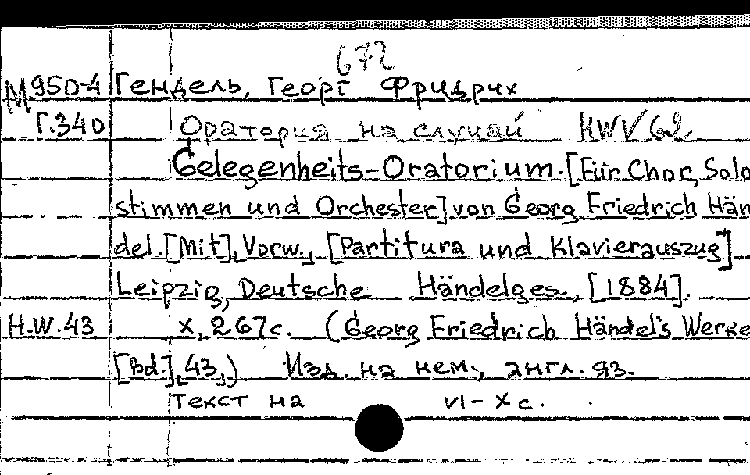 672
М950-4 Гендель, Георг Фридрих
Г.340 Оратория на случай HWV 62.
Gelegenheits-Oratorium. [Für Chor, Solo
stimmen und Orchester] von Georg Friedrich Hän
del. [Mit] Vorw., [Partitura und Klavierauszug]
Leipzig, Deutsche Händelges., [1884].
H.W.43 X, 267 с. (Georg Friedrich Händel's Werke
[Bd.] 43.) Изд. на нем., англ. яз.
Текст на VI-X с.